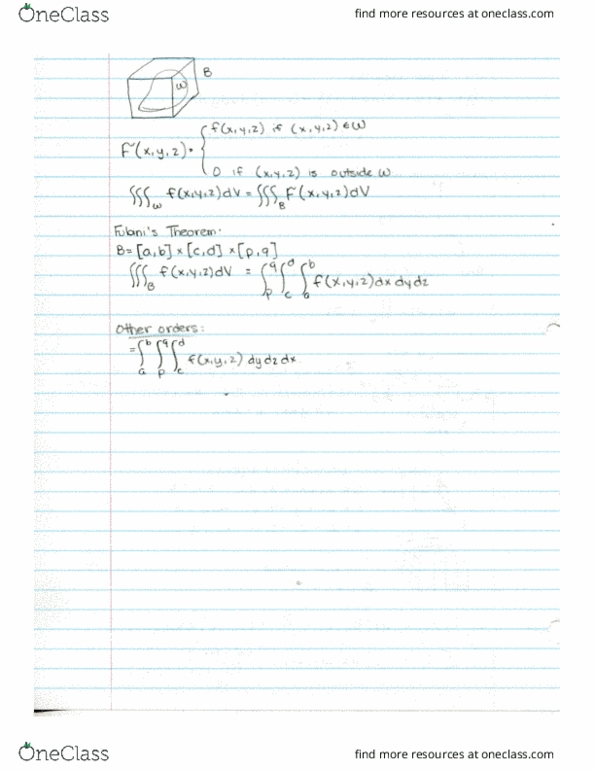 OneClass
find more resources at oneclass.com
B
W
F(x,y,z) = { f(x,y,z) if (x,y,z) ∈ W
0 if (x,y,z) is outside W
∭_W f(x,y,z)dV = ∭_B F(x,y,z)dV
Fubani's Theorem:
B = [a,b] × [c,d] × [p,q]
∭_B f(x,y,z)dV = ∫_p^q ∫_c^d ∫_b^b f(x,y,z) dx dy dz
Other orders:
= ∫_a^b ∫_p^q ∫_c^d f(x,y,z) dy dz dx
OneClass
find more resources at oneclass.com